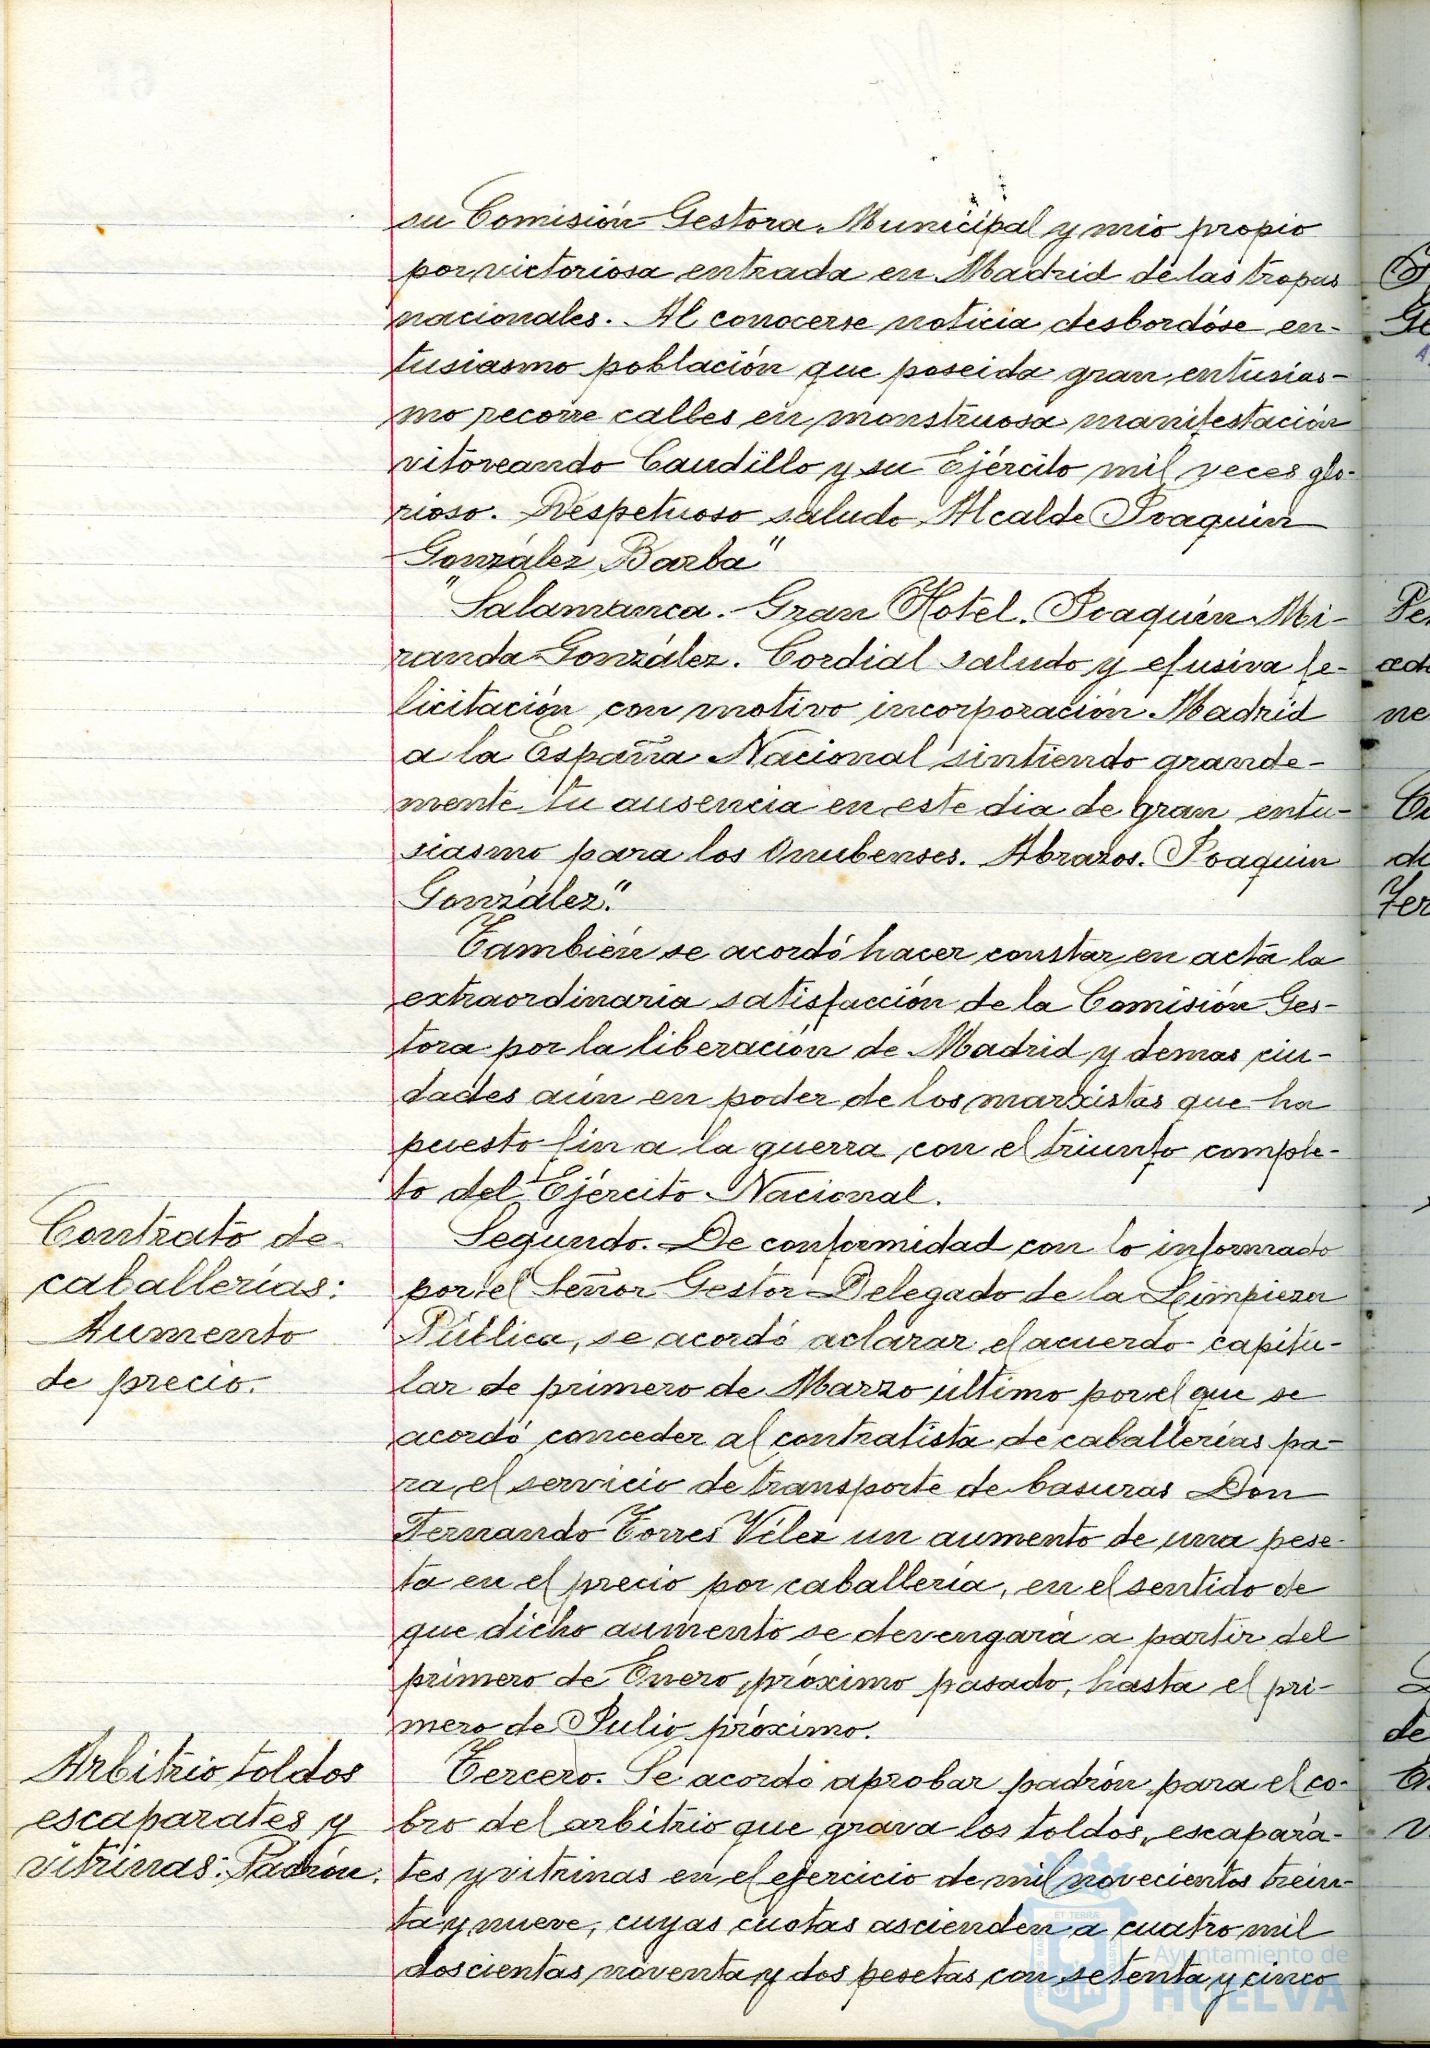 su Comisión Gestora Municipal y mio propio
por victoriosa entrada en Madrid de las tropas
nacionales. Al conocerse noticia desbordóse en-
tusiasmo población que poseida gran entusias-
mo recorre calles en monstruosa manifestación
vitoreando Caudillo y su Ejército mil veces glo-
rioso. Respetuoso saludo Alcalde Joaquin
González Barba"
"Salamanca. Gran Hotel. Joaquin Mi-
randa González. Cordial saludo y efusiva fe-
licitación con motivo incorporación Madrid
a la España Nacional sintiendo grande-
mente tu ausencia en este dia de gran entu-
siasmo para los Onubenses. Abrazos. Joaquin
González."
También se acordó hacer constar en acta la
extraordinaria satisfacción de la Comisión Ges-
tora por la liberación de Madrid y demas ciu-
dades aún en poder de los marxistas que ha
puesto fin a la guerra con el triunfo comple-
to del Ejército Nacional.
Contrato de
caballerías:
Aumento
de precio.
Segundo. De conformidad con lo informado
por el Señor Gestor Delegado de la Limpieza
Pública, se acordó aclarar el acuerdo capitu-
lar de primero de Marzo último por el que se
acordó conceder al contratista de caballerías pa-
ra el servicio de transporte de basuras Don
Fernando Torres Vélez un aumento de una pese-
ta en el precio por caballería, en el sentido de
que dicho aumento se devengará a partir del
primero de Enero próximo pasado, hasta el pri-
mero de Julio próximo.
Arbitrio toldos
escaparates y
vitrinas: Padrón.
Tercero. Se acordó aprobar padrón para el co-
bro del arbitrio que grava los toldos, escapara-
tes y vitrinas en el ejercicio de mil novecientos trein-
ta y nueve, cuyas cuotas ascienden a cuatro mil
doscientas noventa y dos pesetas con setenta y cinco
Ayuntamiento de
HUELVA